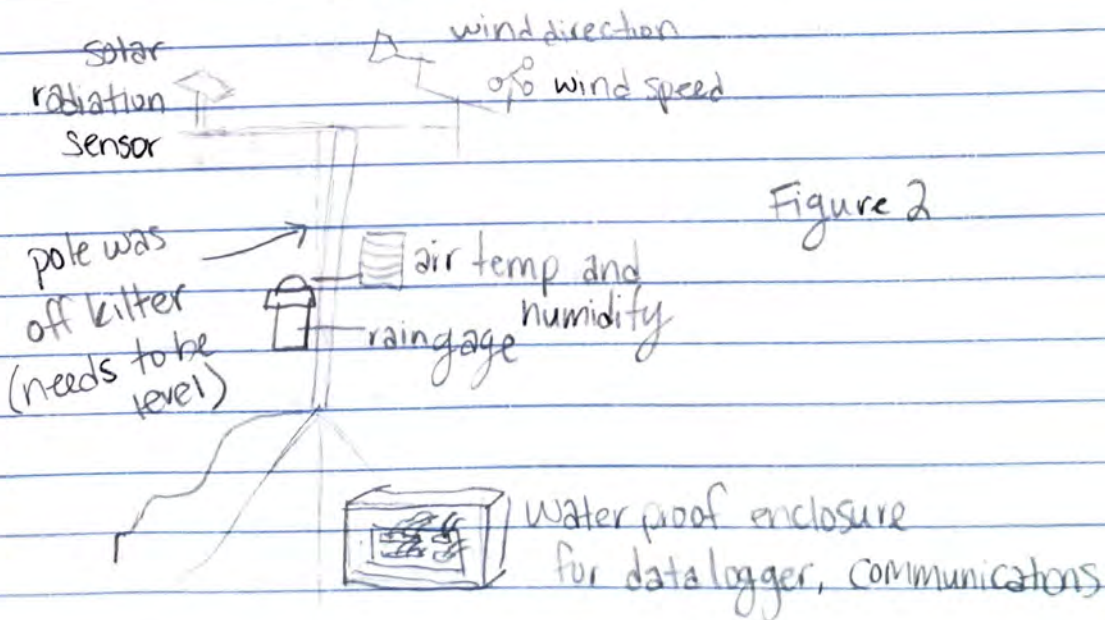 solar
radiation
sensor
wind direction
wind speed
Figure 2
pole was
off kilter
(needs to be
level)
air temp and
humidity
raingage
Water proof enclosure
for datalogger, communications